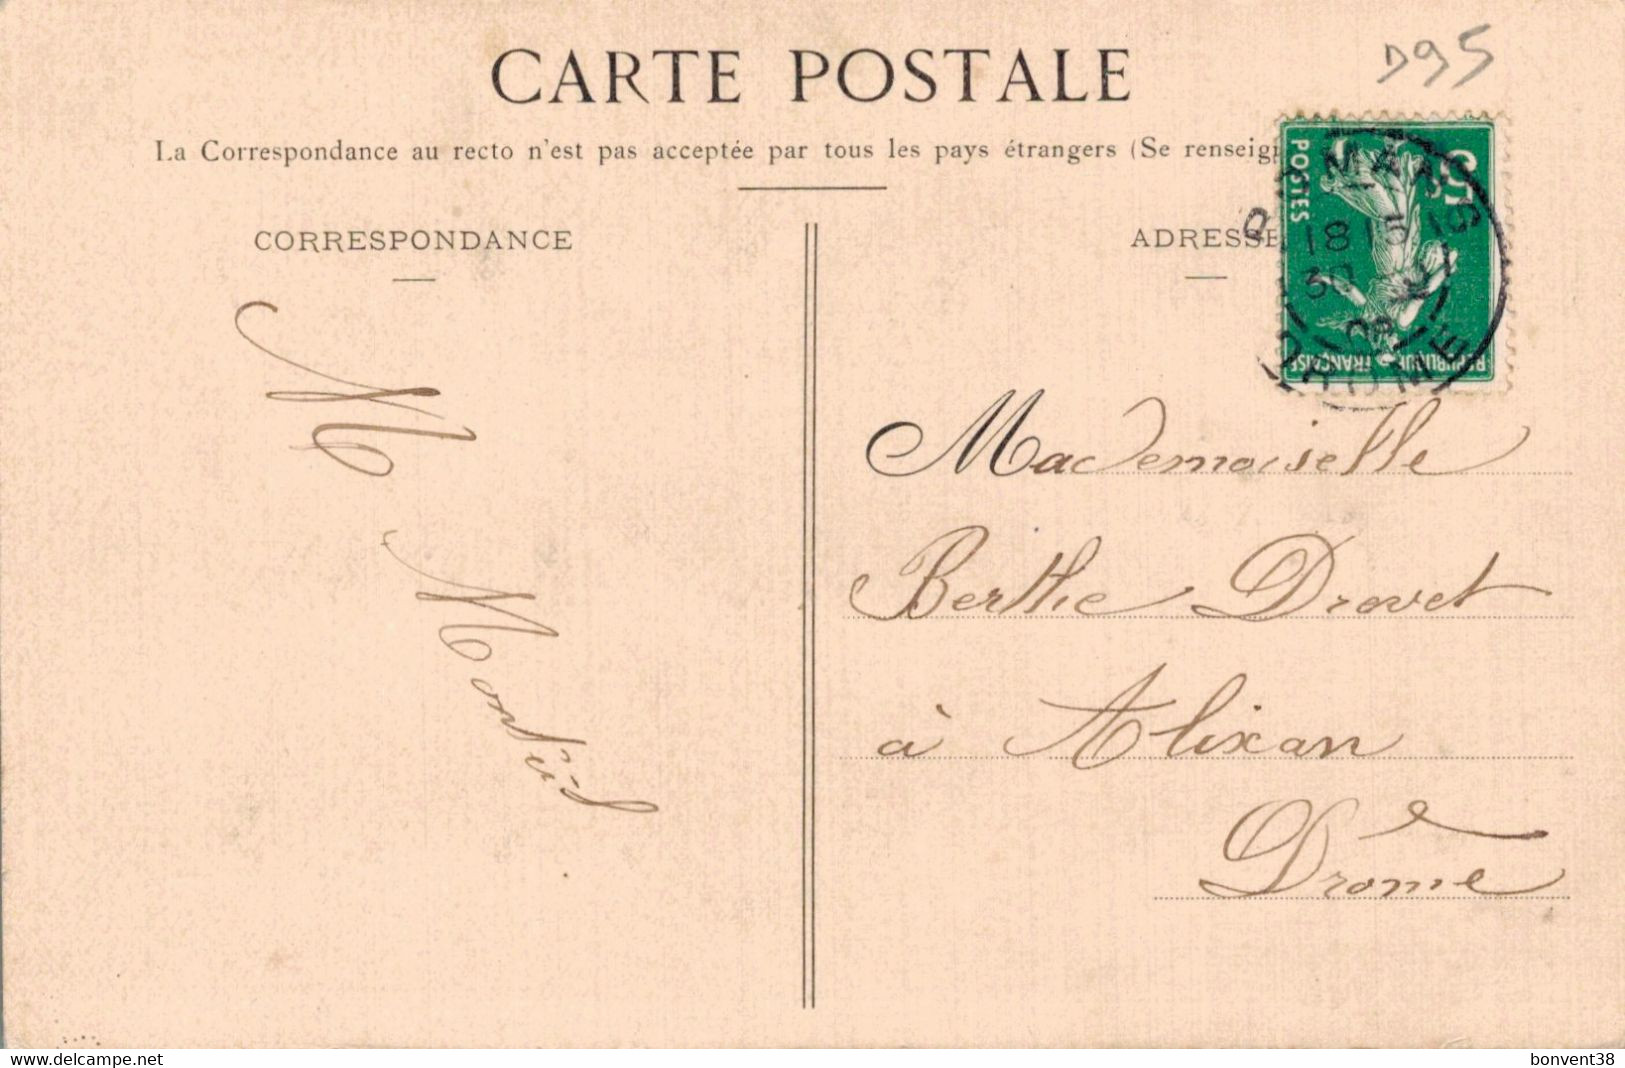 D95
CARTE POSTALE
La Correspondance au recto n'est pas acceptée par tous les pays étrangers (Se renseig
CORRESPONDANCE
ADRESSE
POSTES
5
REPUBLIQUE FRANÇAISE
18 15
30
09
DROME
Mademoiselle
Berthe Drevet
à Alixan
Drôme
M
delcampe.net
bonvent38